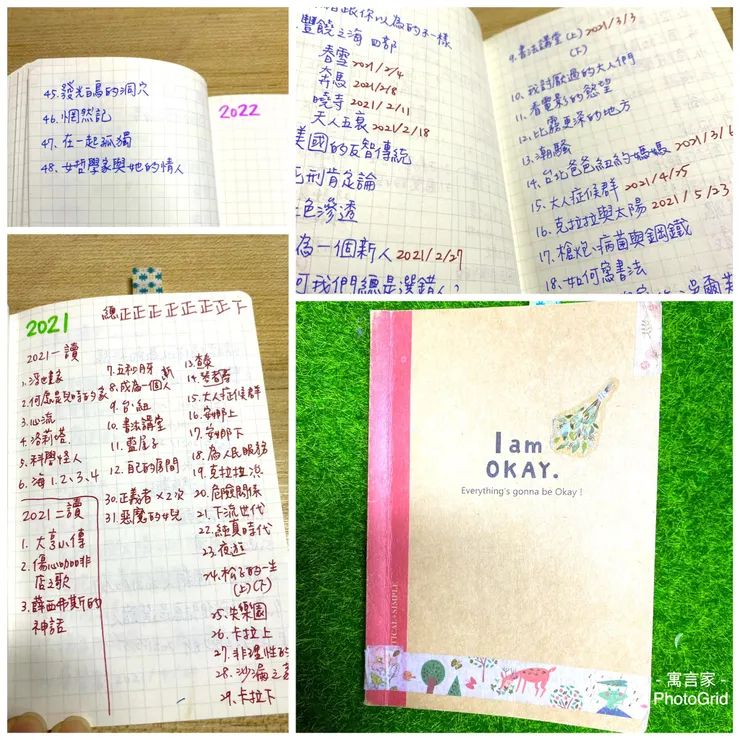 45.發光白馬的洞穴
46.惘然記
47.在一起孤獨
48.女哲學家與她的情人
2022
跟你以為的不一樣
豐饒之海 四部
春雪 2021/2/4
奔馬 2021/2/8
曉寺 2021/2/11
天人五衰 2021/2/18
美國的反智傳統
死刑肯定論
色滲透
為一個新人 2021/2/27
可我們總是選錯人?
9.書法講堂(上) 2021/3/3
(下)
10.我討厭過的大人們
11.看電影的慾望
12.比霧更深的地方
13.潮騷
14.台北爸爸紐約媽媽 2021/3/6
15.大人症候群 2021/4/25
16.克拉拉與太陽 2021/5/23
17.槍炮、病菌與鋼鐵
18.如何寫書法
2021
總正正正正正正正下
2021一讀
1.浮世畫家
2.何處是兒時的家
3.心流
4.洛莉塔
5.科學怪人
6.海1.2.3.4
2021二讀
1.大亨小傳
2.傷心咖啡店之歌
3.薛西弗斯的神話
7.五秒月牙
8.成為一個新人
9.台.紐
10.書法講堂
11.靈屋子
12.自己的房間
30.正義者×2次
31.惡魔的女兒
15.大人症候群
16.安娜上
17.安娜下
18.為人民服務
19.克拉拉
20.危險關係
21.下流世代
22.純真時代
23.夜遊
24.松子的一生
(上)(下)
25.失樂園
26.卡拉上
27.非理性的
28.沙
29.卡拉下
I am
OKAY.
Everything's gonna be Okay !
TICAL+SIMPLE
- 寓言家 -
PhotoGrid